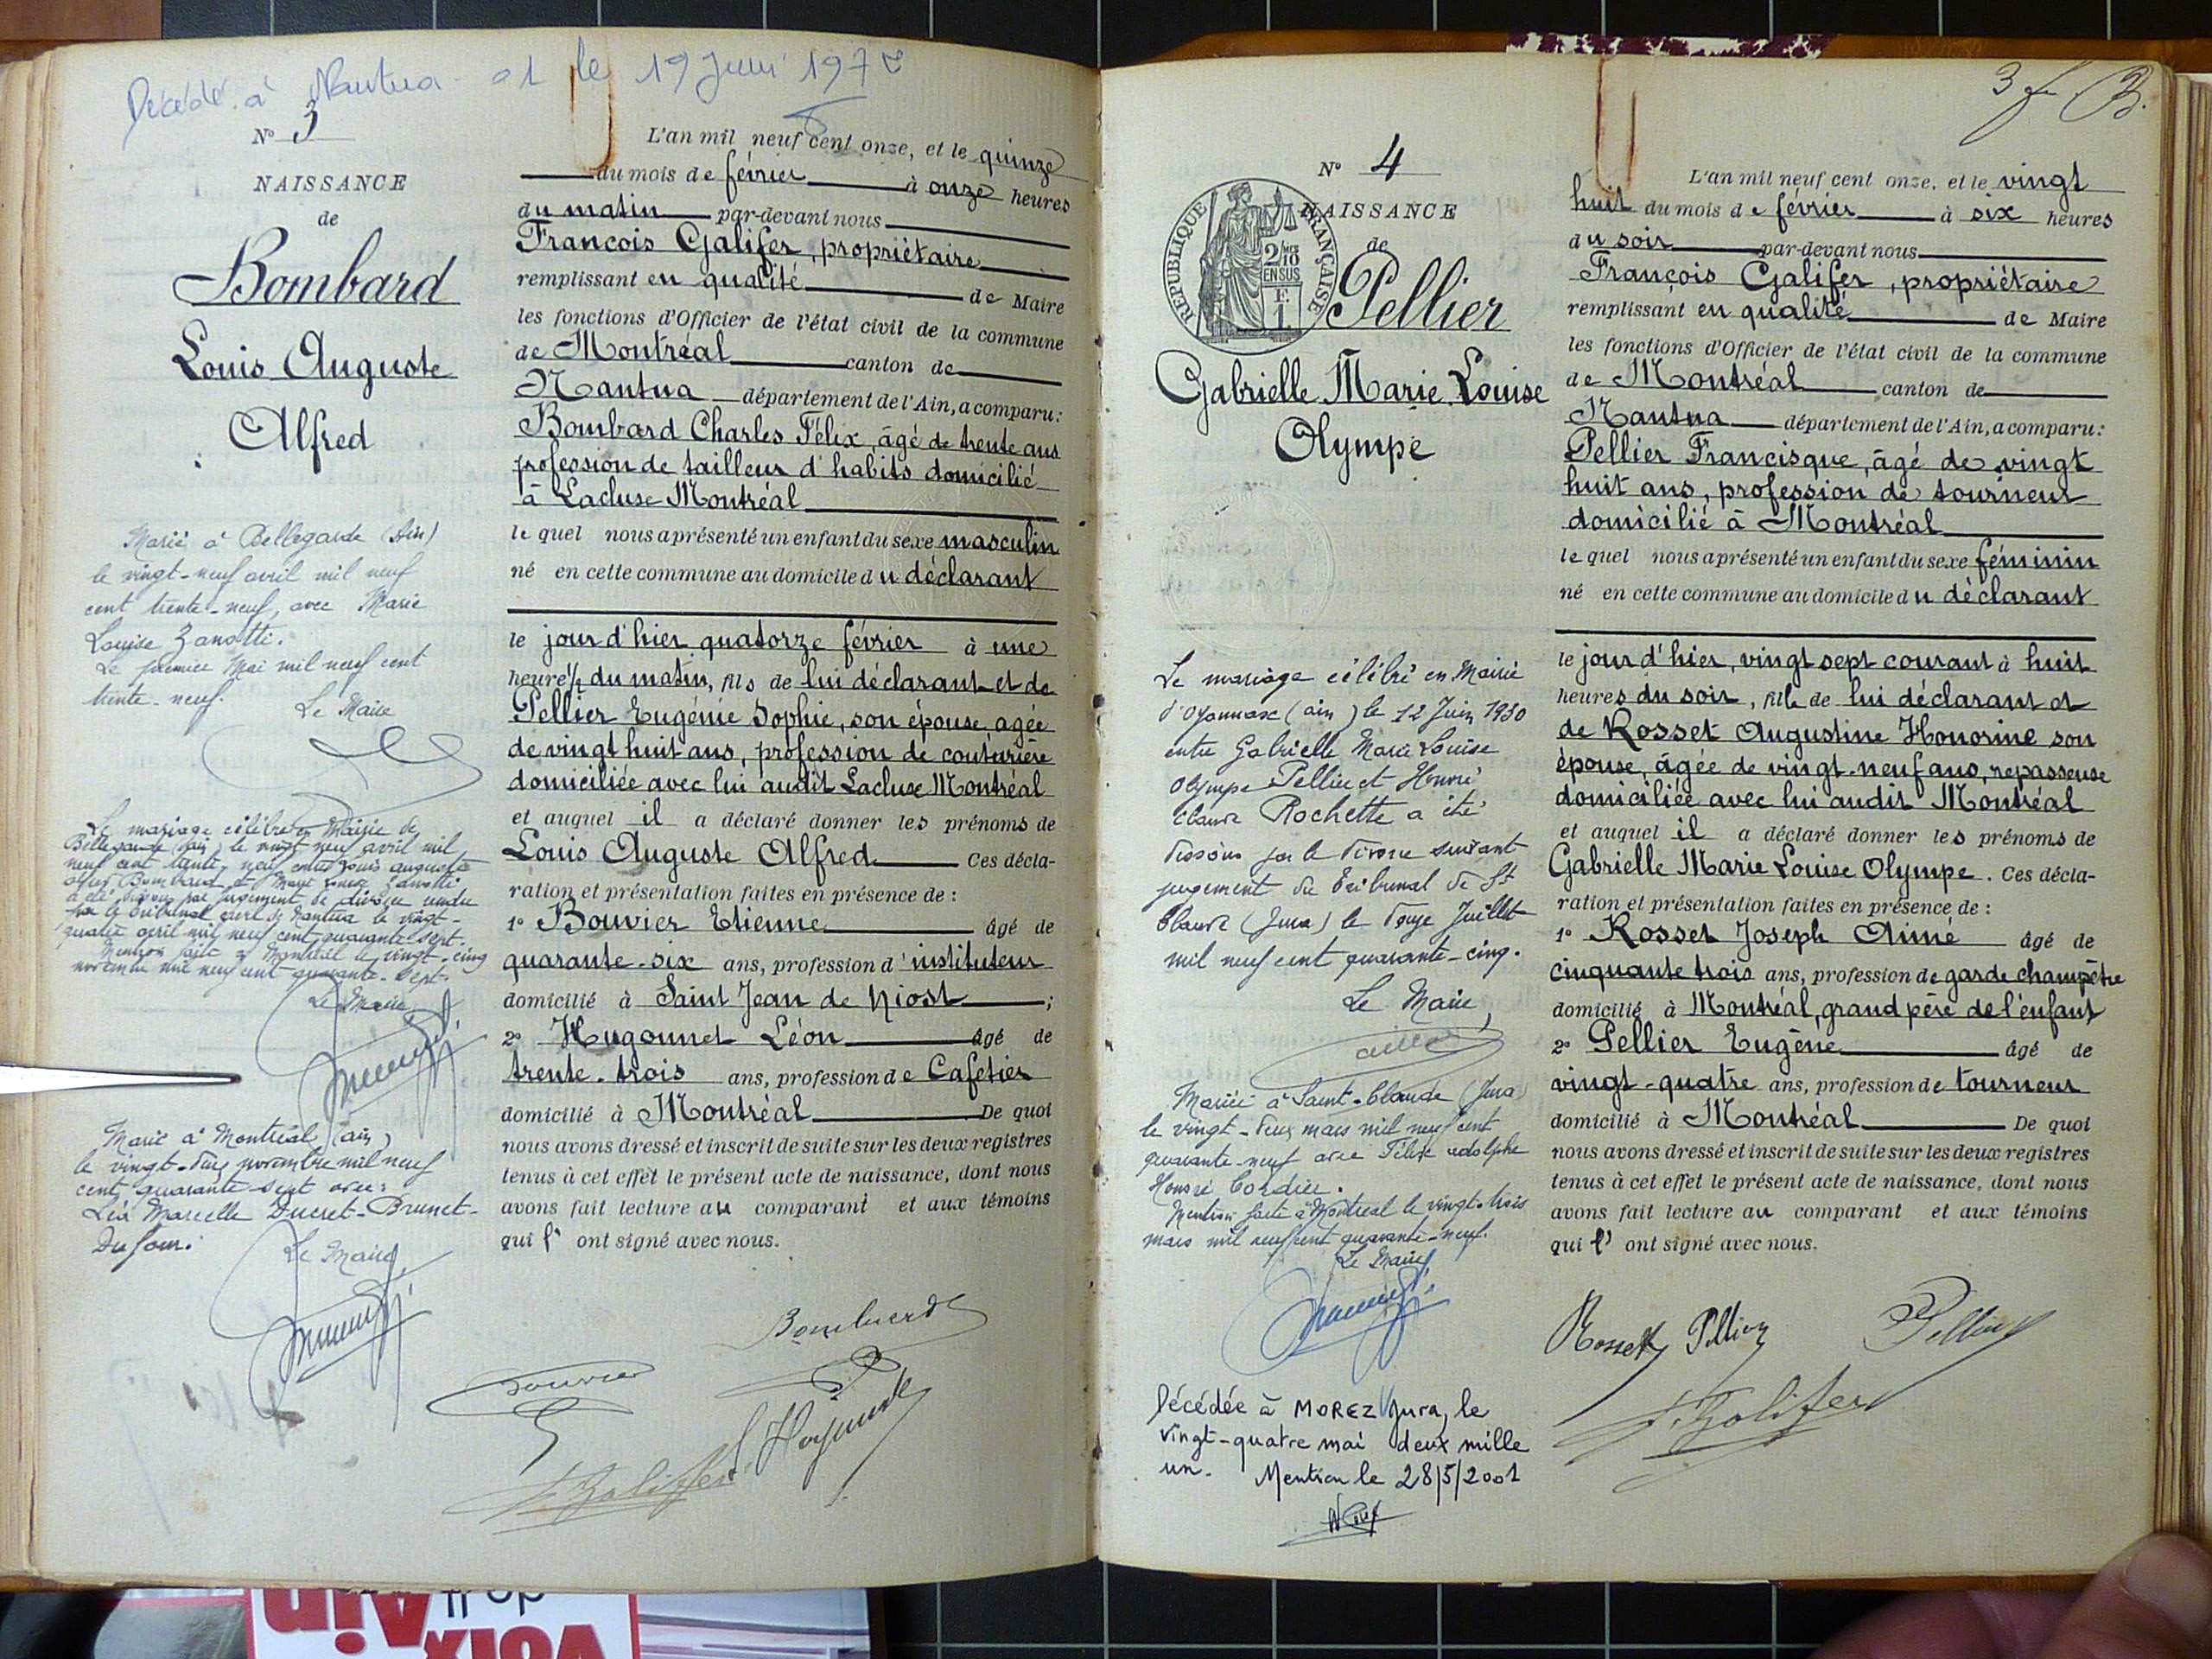 Décédé à Nantua 01 le 19 Juin 197
N° 3
NAISSANCE
de
Bombard
Louis Auguste
Alfred
Marié à Bellegarde (Ain)
le vingt-neuf avril mil neuf
cent trente-neuf, avec Marie
Louise Zanotti.
Le premier Mai mil neuf cent
trente-neuf.
Le Maire
Le mariage célébré en Mairie de
Bellegarde (Ain) le vingt neuf avril mil
neuf cent trente-neuf entre Louis Auguste
Alfred Bombard et Marie Louise Zanotti
a été dissous par jugement de divorce rendu
par le Tribunal civil de Nantua le vingt-
quatre avril mil neuf cent quarante-sept.
Mention faite à Montréal le vingt-cinq
novembre mil neuf cent quarante-sept.
Le Maire
Marié à Montréal (ain)
le vingt-deux novembre mil neuf
cent quarante-sept avec:
Léa Marcelle Ducret-Brunet-
Dufour.
Le Maire,
L'an mil neuf cent onze, et le quinze
du mois de février à onze heures
du matin par-devant nous
François Galifer, propriétaire
remplissant en qualité de Maire
les fonctions d'Officier de l'état civil de la commune
de Montréal canton de
Nantua département de l'Ain, a comparu:
Bombard Charles Félix, âgé de trente ans
profession de tailleur d'habits domicilié
à Lacluse Montréal
le quel nous a présenté un enfant du sexe masculin
né en cette commune au domicile du déclarant
le jour d'hier quatorze février à une
heure ½ du matin, fils de lui déclarant et de
Pellier Eugénie Sophie, son épouse, agée
de vingt huit ans, profession de couturière
domiciliée avec lui audit Lacluse Montréal
et auquel il a déclaré donner les prénoms de
Louis Auguste Alfred Ces décla-
ration et présentation faites en présence de :
1° Bouvier Etienne âgé de
quarante-six ans, profession d'instituteur
domicilié à Saint Jean de Niost ;
2° Hugonnet Léon âgé de
trente-trois ans, profession de Cafetier
domicilié à Montréal De quoi
nous avons dressé et inscrit de suite sur les deux registres
tenus à cet effet le présent acte de naissance, dont nous
avons fait lecture au comparant et aux témoins
qui l' ont signé avec nous.
Bombard
Bouvier
L Hugonnet
F. Galifer
3 f
N° 4
REPUBLIQUE FRANÇAISE
2/10
EN SUS
1 F.
NAISSANCE
de
Pellier
Gabrielle Marie Louise
Olympe
Le mariage célébré en Mairie
d'Oyonnax (ain) le 12 Juin 1930
entre Gabrielle Marie Louise
Olympe Pellier et Honoré
Claude Rochette a été
dissous par le divorce suivant
jugement du Tribunal de St
Claude (Jura) le douze Juillet
mil neuf cent quarante-cinq.
Le Maire,
Mariée à Saint-Claude (Jura)
le vingt-deux mars mil neuf cent
quarante-neuf avec Félix adolphe
Honoré Cordier.
Mention faite à Montréal le vingt-trois
mars mil neuf cent quarante-neuf.
Le Maire,
Décédée à MOREZ Jura, le
vingt-quatre mai deux mille
un. Mention le 28/5/2001
L'an mil neuf cent onze, et le vingt
huit du mois de février à six heures
du soir par-devant nous
François Galifer, propriétaire
remplissant en qualité de Maire
les fonctions d'Officier de l'état civil de la commune
de Montréal canton de
Nantua département de l'Ain, a comparu:
Pellier Francisque, âgé de vingt
huit ans, profession de tourneur
domicilié à Montréal
le quel nous a présenté un enfant du sexe féminin
né en cette commune au domicile du déclarant
le jour d'hier, vingt sept courant à huit
heures du soir, fille de lui déclarant et
de Rosset Augustine Honorine son
épouse, âgée de vingt-neuf ans, repasseuse
domiciliée avec lui audit Montréal
et auquel il a déclaré donner les prénoms de
Gabrielle Marie Louise Olympe. Ces décla-
ration et présentation faites en présence de :
1° Rosset Joseph Aimé âgé de
cinquante trois ans, profession de garde champêtre
domicilié à Montréal, grand père de l'enfant
2° Pellier Eugène âgé de
vingt-quatre ans, profession de tourneur
domicilié à Montréal De quoi
nous avons dressé et inscrit de suite sur les deux registres
tenus à cet effet le présent acte de naissance, dont nous
avons fait lecture au comparant et aux témoins
qui l' ont signé avec nous.
Rosset Pellier Pellier
F. Galifer
VOIX
Ain